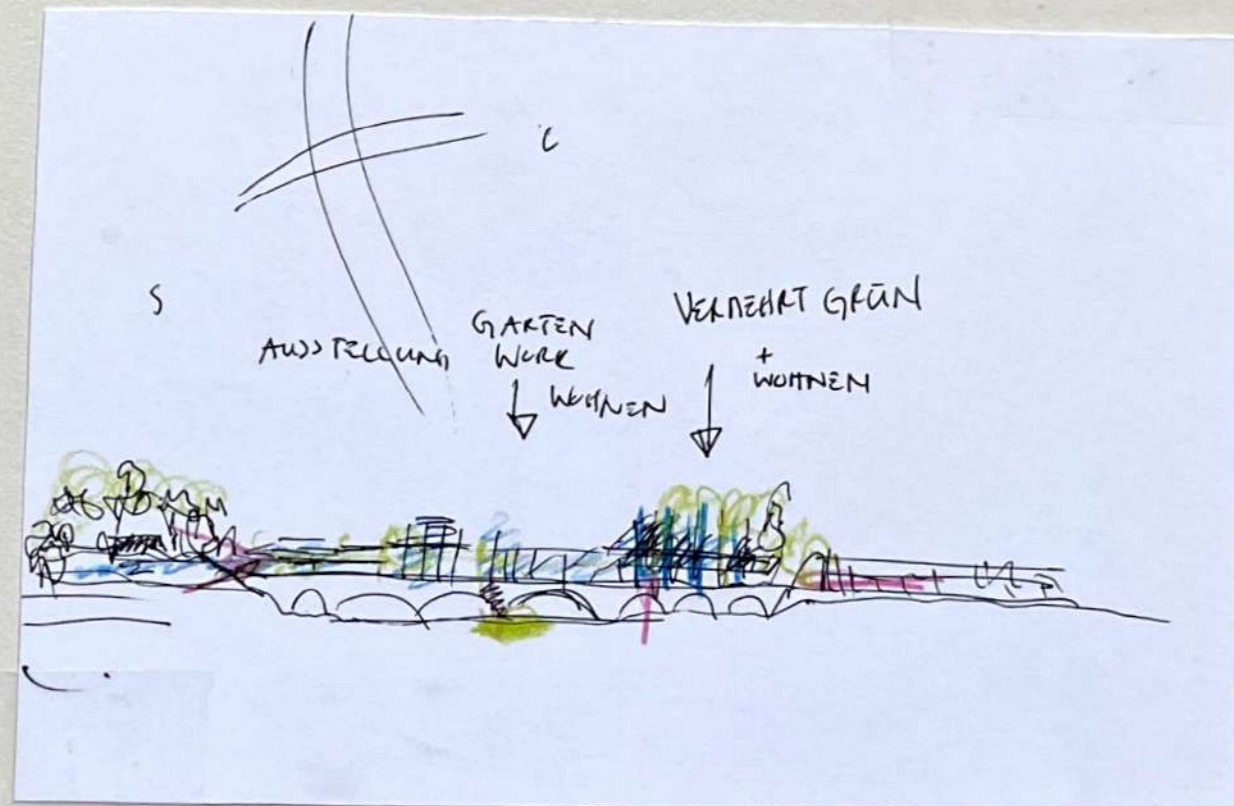 S
AUSSTELLUNG
GARTEN
WORK
WOHNEN
VERMEHRT GRÜN
+
WOHNEN